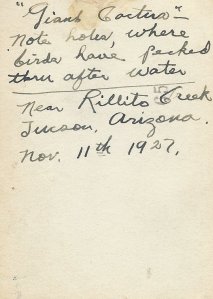 "Giant Cactus"-
Note holes, where
birds have pecked
thru after water
Near Rillito Creek
Tucson, Arizona.
Nov. 11th 1927.